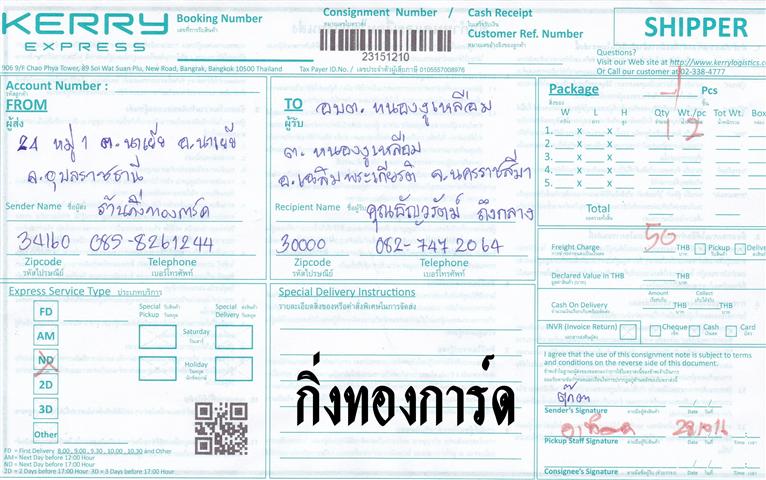 KERRY
EXPRESS
Booking Number
เลขที่การรับสินค้า
Consignment Number /
หมายเลขใบตราส่ง
23151210
Cash Receipt
ใบเสร็จรับเงิน
Customer Ref. Number
หมายเลขอ้างอิงของลูกค้า
SHIPPER
906 9/F Chao Phya Tower, 89 Soi Wat Suan Plu, New Road, Bangrak, Bangkok 10500 Thailand
Tax Payer ID.No./ เลขประจำตัวผู้เสียภาษี 0105557008976
Questions?
Visit our Web site at http://www.kerrylogistics.co
Or Call our customer at 02-338-4777
Account Number :
รหัสลูกค้า
FROM
ผู้ส่ง
24 หมู่ 1 ต.นาเยีย อ.นาเยีย
จ.อุบลราชธานี
Sender Name ชื่อผู้ส่ง ร้านกิ่งทองการ์ด
34160 085-8261244
Zipcode Telephone
รหัสไปรษณีย์ เบอร์โทรศัพท์
TO อบต. หนองงูเหลือม
ผู้รับ
ต. หนองงูเหลือม
อ.เฉลิมพระเกียรติ จ.นครราชสีมา
Recipient Name ชื่อผู้รับ คุณธัญวรัตม์ ถึงกลาง
30000 082-747 2064
Zipcode Telephone
รหัสไปรษณีย์ เบอร์โทรศัพท์
Package 1 Pcs
สิ่งของ ชิ้น
W L H Qty Wt./pc Tot Wt. Box
1. x x 1 2
2. x x
3. x x
4. x x
5. x x
Total
Freight Charge 50 THB Pickup Delive
Declared Value in THB THB
Amount Collect
Cash On Delivery THB
INVR (Invoice Return) Cheque Cash Card
เช็ค เงินสด บัตร
I agree that the use of this consignment note is subject to terms
and conditions on the reverse side of this document.
Sender's Signature ลายมือชื่อผู้ส่ง วันที่
28/10/16
Pickup Staff Signature วันที่ เวลา
Consignee's Signature ลายมือชื่อผู้รับ วันที่ เวลา
Express Service Type ประเภทบริการ
FD
AM
ND
2D
3D
Other
Special Pickup
Special Delivery
Saturday
วันเสาร์
Holiday
วันหยุด
นักขัตฤกษ์
FD = First Delivery 8.00, 9.00, 9.30, 10.00, 10.30 and Other
AM = Next Day before 12:00 Hour
ND = Next Day before 17:00 Hour
2D = 2 Days before 17:00 Hour 3D = 3 Days before 17:00 Hour
Special Delivery Instructions
รายละเอียดสิ่งของหรือคำสั่งพิเศษในการจัดส่ง
กิ่งทองการ์ด